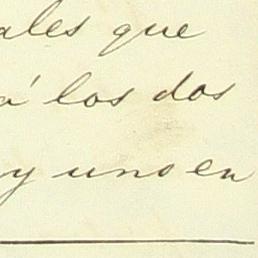 ales que
á los dos
y uno en